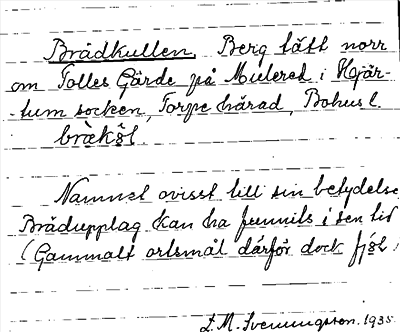 Brädkullen. Berg tätt norr
om Tolles Gärde på Muleret i Hjär-
-tum socken, Torpe härad, Bohusl.
bräk
Namnet ovisst till sin betydelse
Brädupplag kan ha funnits i sen tid
(Gammalt ortsmål därför dock fjöl.)
L. M. Svenungsson. 1935.